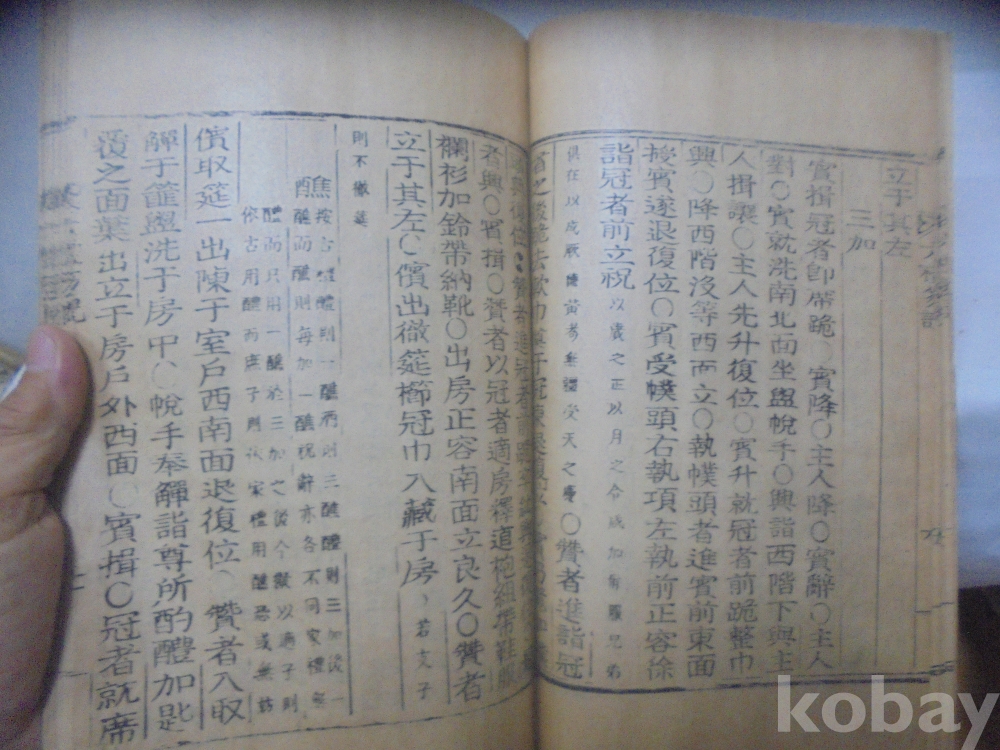 立于其左
三加
賓揖冠者卽席跪○賓降○主人降○賓辭○主人
對○賓就洗南北面坐盥帨手○興詣西階下與主
人揖讓○主人先升復位○賓升就冠者前跪整巾
興○降西階沒等西面立○執幞頭者進賓前東面
授賓遂退復位○賓受幞頭右執項左執前正容徐
詣冠者前立祝以歲之正以月之令咸加爾服兄弟
俱在以成厥德黃耇無疆受天之慶○贊者進詣冠
者興○賓揖○贊者以冠者適房釋道袍組帶鞋服
襴衫加鈴帶納靴○出房正容南面立良久○贊者
立于其左○儐出徹筵櫛冠巾入藏于房 若支子
則不徹筵
醮
醴而只用一醮於三加之後今擬以適子則
依古用醴而庶子則依家禮用醮恐或無妨
儐取筵一出陳于室戶西南面退復位○贊者入取
觶于篚盥洗于房中○帨手奉觶詣尊所酌醴加匙
覆之面葉出立于房戶外西面○賓揖○冠者就席
kobay